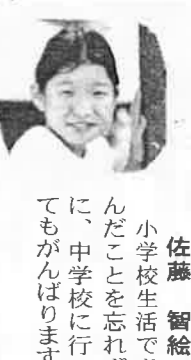 佐藤　智絵
小学校生活で
んだことを忘れ
に、中学校に行
てもがんばります